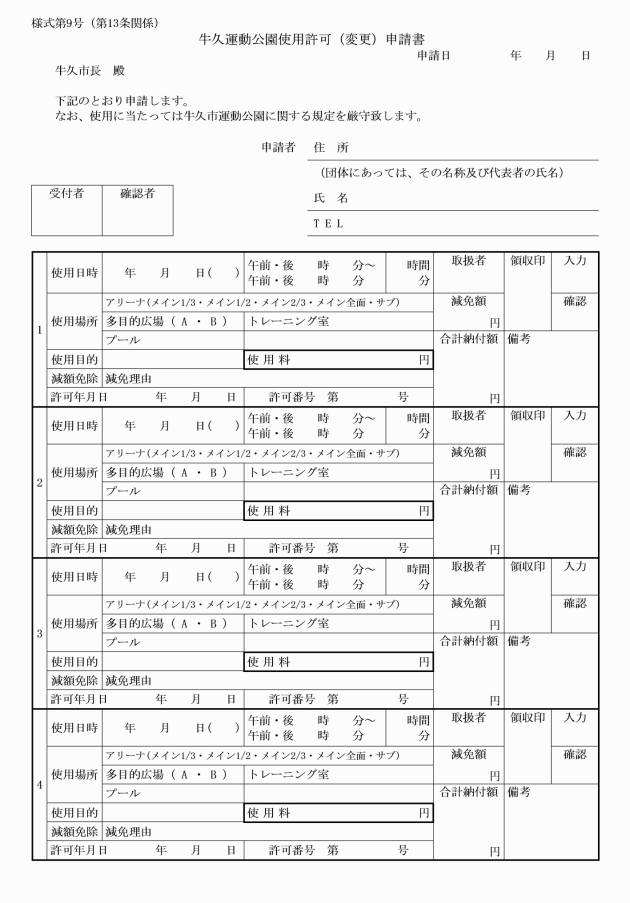 様式第9号（第13条関係）
牛久運動公園使用許可（変更）申請書
申請日　　　　　年　　月　　日
牛久市長　殿
下記のとおり申請します。
なお、使用に当たっては牛久市運動公園に関する規定を厳守致します。
申請者　住　所
（団体にあっては、その名称及び代表者の氏名）
受付者　確認者
氏　名
ＴＥＬ
1
使用日時　年　　月　　日（　　）　午前・後　　時　　分～　時間　取扱者　領収印　入力
午前・後　　時　　分　　分
使用場所　アリーナ（メイン1/3・メイン1/2・メイン2/3・メイン全面・サブ）　減免額　確認
多目的広場（Ａ・Ｂ）　トレーニング室　円
プール　合計納付額　備考
使用目的　使用料　円
減額免除　減免理由
許可年月日　年　　月　　日　許可番号　第　　　　号　円
2
使用日時　年　　月　　日（　　）　午前・後　　時　　分～　時間　取扱者　領収印　入力
午前・後　　時　　分　　分
使用場所　アリーナ（メイン1/3・メイン1/2・メイン2/3・メイン全面・サブ）　減免額　確認
多目的広場（Ａ・Ｂ）　トレーニング室　円
プール　合計納付額　備考
使用目的　使用料　円
減額免除　減免理由
許可年月日　年　　月　　日　許可番号　第　　　　号　円
3
使用日時　年　　月　　日（　　）　午前・後　　時　　分～　時間　取扱者　領収印　入力
午前・後　　時　　分　　分
使用場所　アリーナ（メイン1/3・メイン1/2・メイン2/3・メイン全面・サブ）　減免額　確認
多目的広場（Ａ・Ｂ）　トレーニング室　円
プール　合計納付額　備考
使用目的　使用料　円
減額免除　減免理由
許可年月日　年　　月　　日　許可番号　第　　　　号　円
4
使用日時　年　　月　　日（　　）　午前・後　　時　　分～　時間　取扱者　領収印　入力
午前・後　　時　　分　　分
使用場所　アリーナ（メイン1/3・メイン1/2・メイン2/3・メイン全面・サブ）　減免額　確認
多目的広場（Ａ・Ｂ）　トレーニング室　円
プール　合計納付額　備考
使用目的　使用料　円
減額免除　減免理由
許可年月日　年　　月　　日　許可番号　第　　　　号　円